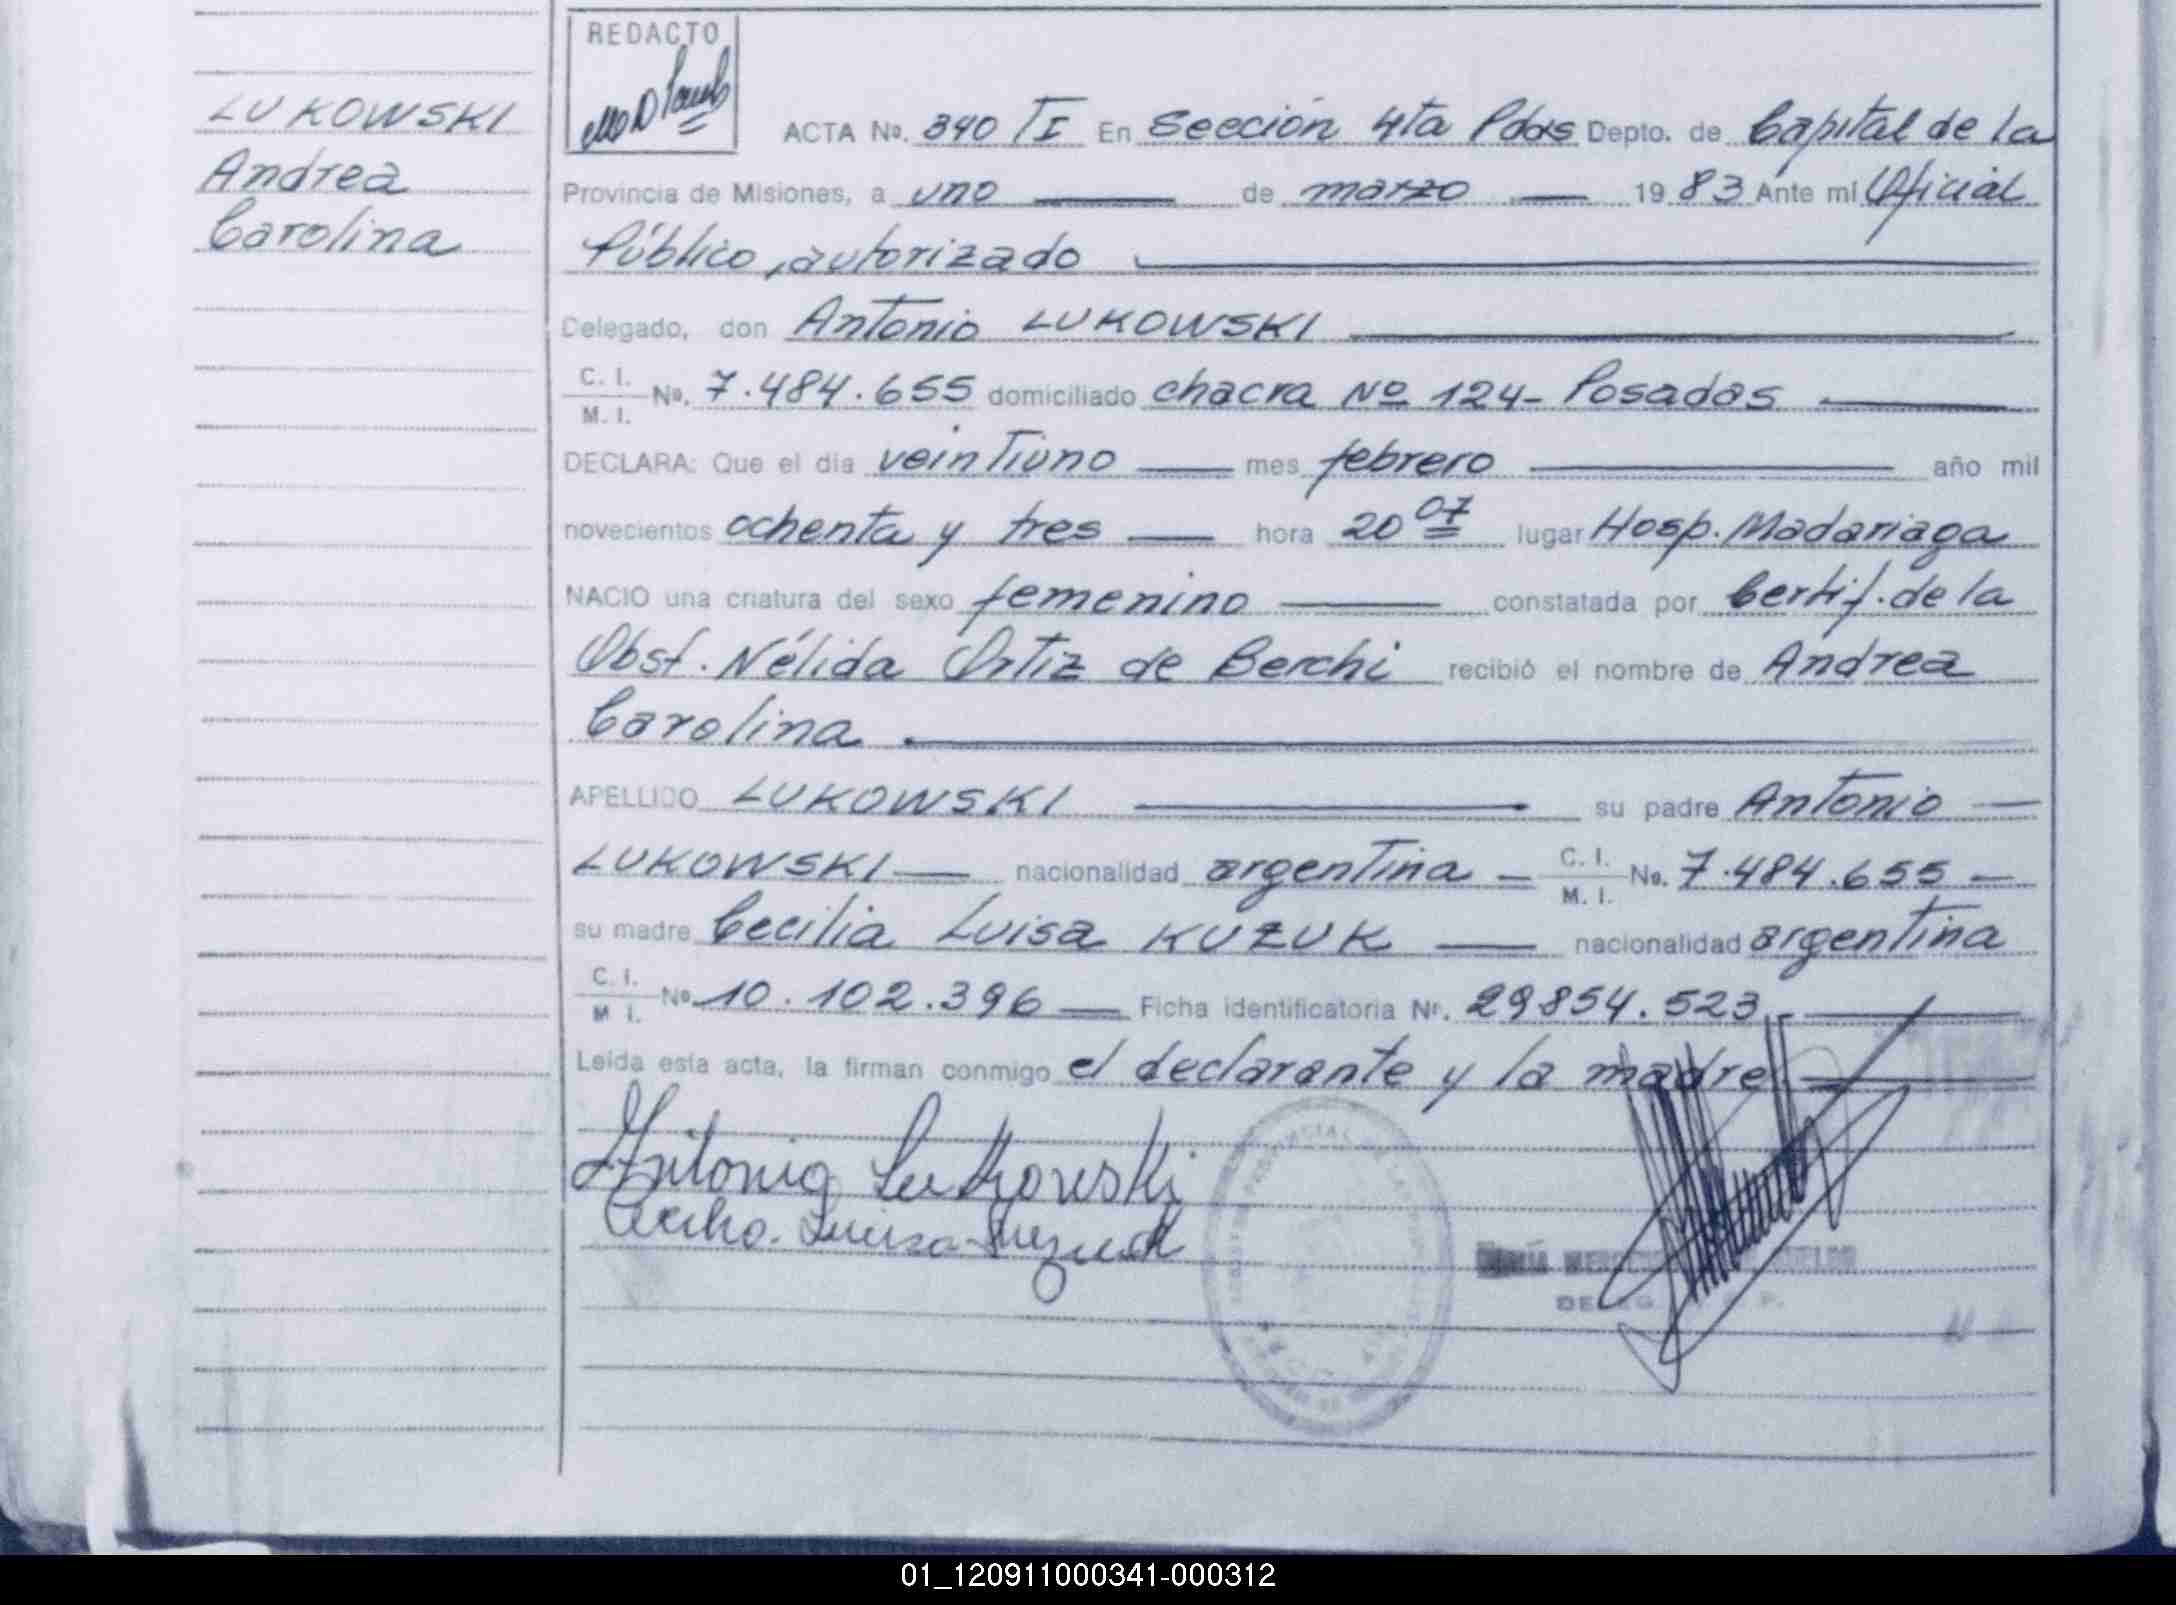 REDACTO
LUKOWSKI
Andrea
Carolina
ACTA No. 340 TI En Sección 4ta Pdas Depto. de Capital de la
Provincia de Misiones, a uno de marzo 1983 Ante mi Oficial
Público, autorizado
Delegado, don Antonio LUKOWSKI
C. I. M. I. No. 7.484.655 domiciliado chacra No 124- Posadas
DECLARA: Que el dia veintiuno mes febrero año mil
novecientos ochenta y tres hora 20 07 lugar Hosp. Madariaga
NACIO una criatura del sexo femenino constatada por Certif. de la
Obst. Nélida Ortiz de Berchi recibió el nombre de Andrea
Carolina
APELLIDO LUKOWSKI su padre Antonio
LUKOWSKI nacionalidad argentina C. I. M. I. No. 7.484.655
su madre Cecilia Luisa KUZUK nacionalidad argentina
C. I. M I. No 10.102.396 Ficha identificatoria Nr. 29854.523
Leida esta acta, la firman conmigo el declarante y la madre
Antonio Lukowski
Cecilia Luisa Kuzuk
01_120911000341-000312